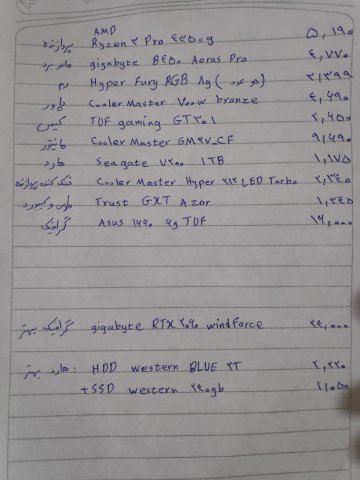 AMD
پردازنده Ryzen ۳ Pro ۴۳۵۰g ۵,۱۹۰
مادربرد gigabyte B۴۵۰ Aorus Pro ۴,۷۷۰
رم Hyper Fury RGB ۸g (دو عدد) ۲,۳۹۹
پاور Cooler Master ۷۰۰w bronze ۲,۴۹۰
کیس TUF gaming GT۳۰۱ ۲,۴۵۰
مانیتور Cooler Master GM۲۷_CF ۹,۴۹۰
هارد Seagate ۷۲۰۰ ۱TB ۱,۱۷۵
خنک کننده پردازنده Cooler Master Hyper ۲۱۲ LED Turbo ۲,۳۴۰
ماوس و کیبورد Trust GXT Azor ۱,۳۴۵
گرافیک Asus ۱۶۶۰ ۶g TUF ۱۹,۰۰۰
گرافیک بهتر gigabyte RTX ۲۰۶۰ windforce ۲۴,۰۰۰
هارد بهتر : HDD western BLUE ۲T ۲,۲۲۰
+SSD western ۲۴۰gb ۱,۰۵۰